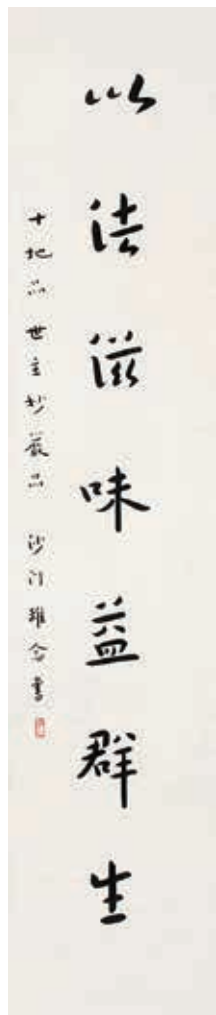 以法滋味益群生
十地品 世主妙嚴品 沙門雅念書